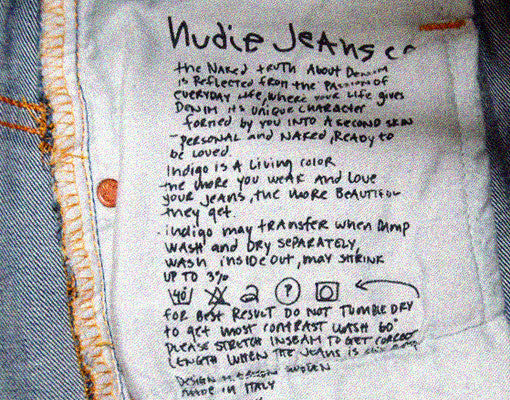 Nudie Jeans co
the NAKed tRUtH About Denim
is ReFLected FROM the PASSION of
EVERYDAY LIFE, WHERE OUR LIFE gives
DENIM its UNIQUE CHARACTER
FORMED by YOU INTO A SECOND SKIN
- PERSONAL and NAKED, READY to
be LOVED
Indigo is A Living coloR
the MORE you WEAR AND LOVE
youR JEANS, tHE MORE BEAUTIFUL
they get
- indigo may tRANSFER when DAMP
WASH and DRY SEPARATELY,
WASH INSIDE OUT, MAY SHRINK
UP TO 3%
40 P
FOR BEST RESULT DO NOT TUMBLE DRY
to get MOST CONTRAST WASH 60°
PLEASE STRETCH INSEAM TO GET CORRECT
LENGTH WHEN THE JEANS IS
DESIGN SWEDEN
MADE IN ITALY